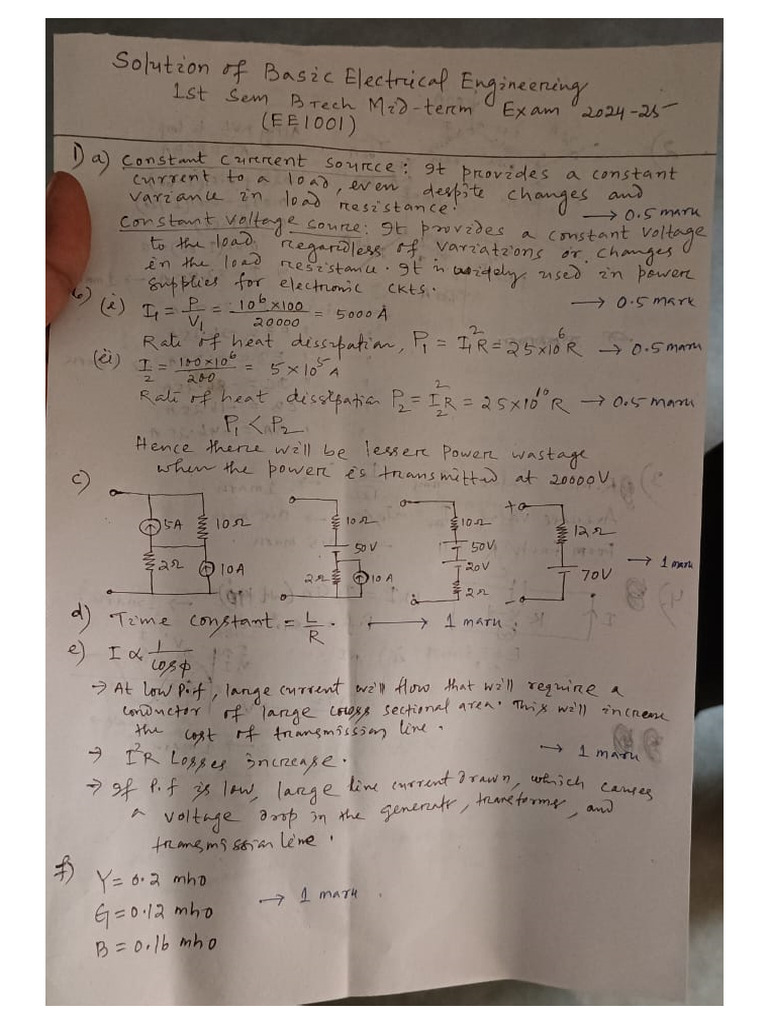 Solution of Basic Electrical Engineering
1st Sem BTech Mid-term Exam 2024-25
(EE1001)
1) a) Constant current source: It provides a constant
current to a load, even despite changes and
variance in load resistance. → 0.5 mark
Constant voltage source: It provides a constant voltage
to the load regardless of variations or changes
in the load resistance. It is widely used in power
supplies for electronic ckts. → 0.5 mark
b) (i) I₁ = P/V₁ = 10⁶×100/20000 = 5000 A
Rate of heat dissipation, P₁ = I₁²R = 25×10⁶R → 0.5 mark
(ii) I₂ = 100×10⁶/200 = 5×10⁵ A
Rate of heat dissipation P₂ = I₂²R = 25×10¹⁰ R → 0.5 mark
P₁ < P₂
Hence there will be lesser power wastage
when the power is transmitted at 20000V.
c)
5A 10Ω 2Ω 10A
10Ω 50V 2Ω 10A
10Ω 50V 20V 2Ω
+ 12Ω 70V -
→ 1 mark
d) Time constant = L/R. → 1 mark.
e) I ∝ 1/cosϕ
→ At low P.f, large current will flow that will require a
conductor of large cross sectional area. This will increase
the cost of transmission line.
→ I²R Losses increase. → 1 mark
→ If P.f is low, large line current drawn, which causes
a voltage drop in the generator, transformer, and
transmission line.
f) Y = 0.2 mho
G = 0.12 mho → 1 mark.
B = 0.16 mho